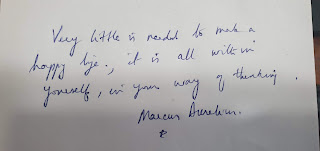 Very little is needed to make a
happy life., it is all within
yourself, in your way of thinking.
Marcus Aurelius.